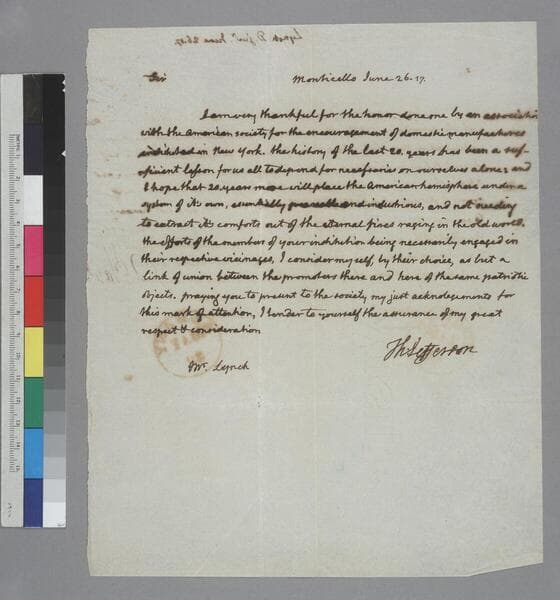 Lynch D. June 26. 17.
Sir Monticello June 26. 17.
I am very thankful for the honor done me by an association
with the American society for the encouragement of domestic manufactures
instituted in New York. the history of the last 20. years has been a suf-
-ficient lesson for us all to depend for necessaries on ourselves alone; and
I hope that 20. years more will place the American hemisphere under a
system of it's own, essentially peaceable and industrious, and not needing
to extract it's comforts out of the eternal fires raging in the old world.
the efforts of the members of your institution being necessarily engaged in
their respective vicinages, I consider myself, by their choice, as but a
link of union between the promoters there and here of the same patriotic
objects. praying you to present to the society my just acknolegements for
this mark of attention, I tender to yourself the assurance of my great
respect & consideration
Th: Jefferson
Mr. Lynch